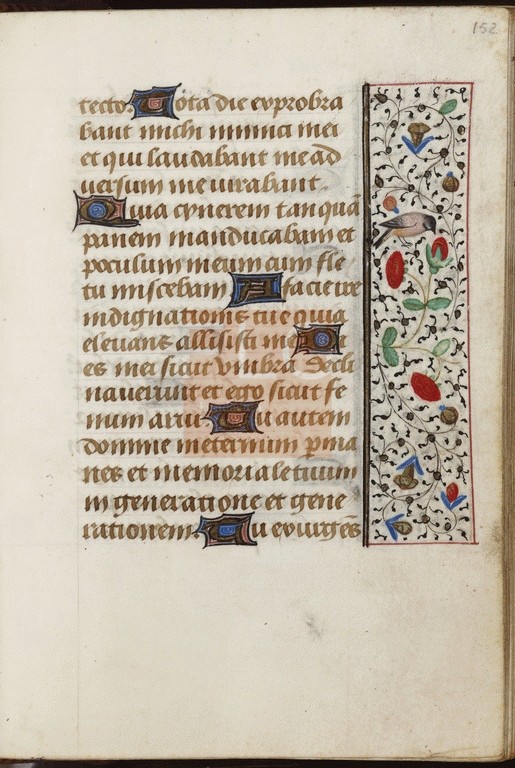 152
tecto. Tota die exprobra
bant michi inimici mei
et qui laudabant me ad
versum me iurabant.
Quia cynerem tanquã
panem manducabam et
poculum meum cum fle
tu miscebam A facie ire
indignationis tue quia
elevans allisisti me Di
es mei sicut vmbra decli
naverunt et ego sicut fe
num arui. Tu autem
domine ineternum pma
nes et memoriale tuum
in generatione et gene
rationem. Tu exurgẽs